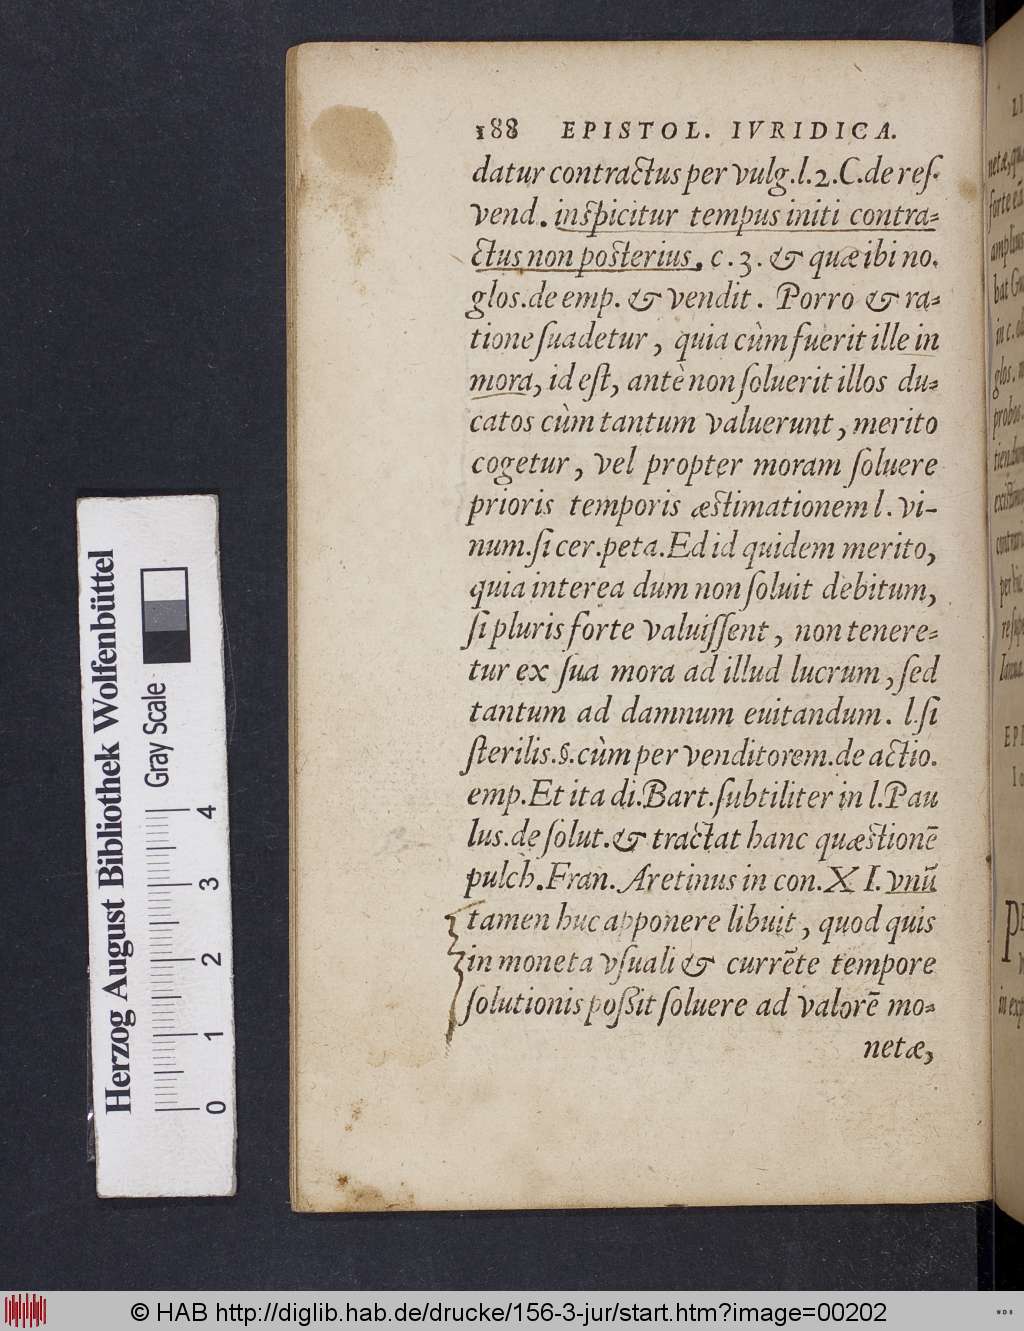 188 EPISTOL. IVRIDICA.
datur contractus per vulg.l.2.C.de reſ.
vend. inſpicitur tempus initi contra-
ctus non poſterius. c. 3. & quæ ibi no.
gloſ.de emp. & vendit. Porro & ra-
tione ſuadetur, quia cùm fuerit ille in
mora, id eſt, antè non ſoluerit illos du-
catos cùm tantum valuerunt, merito
cogetur, vel propter moram ſoluere
prioris temporis æſtimationem l. vi-
num.ſi cer.peta. Ed id quidem merito,
quia interea dum non ſoluit debitum,
ſi pluris forte valuiſſent, non tenere-
tur ex ſua mora ad illud lucrum, ſed
tantum ad damnum euitandum. l.ſi
ſterilis.§.cùm per venditorem.de actio.
emp. Et ita di.Bart.ſubtiliter in l.Pau
lus.de ſolut.& tractat hanc quæſtionē
pulch.Fran. Aretinus in con. X I. vnū
tamen huc apponere libuit, quod quis
in moneta vſuali & currēte tempore
ſolutionis poſſit ſoluere ad valorē mo-
netæ,
netæ, qu
forte
in c.
gloſ.
probos
per
in exp
Herzog August Bibliothek Wolfenbüttel
Gray Scale
0 1 2 3 4
© HAB http://diglib.hab.de/drucke/156-3-jur/start.htm?image=00202